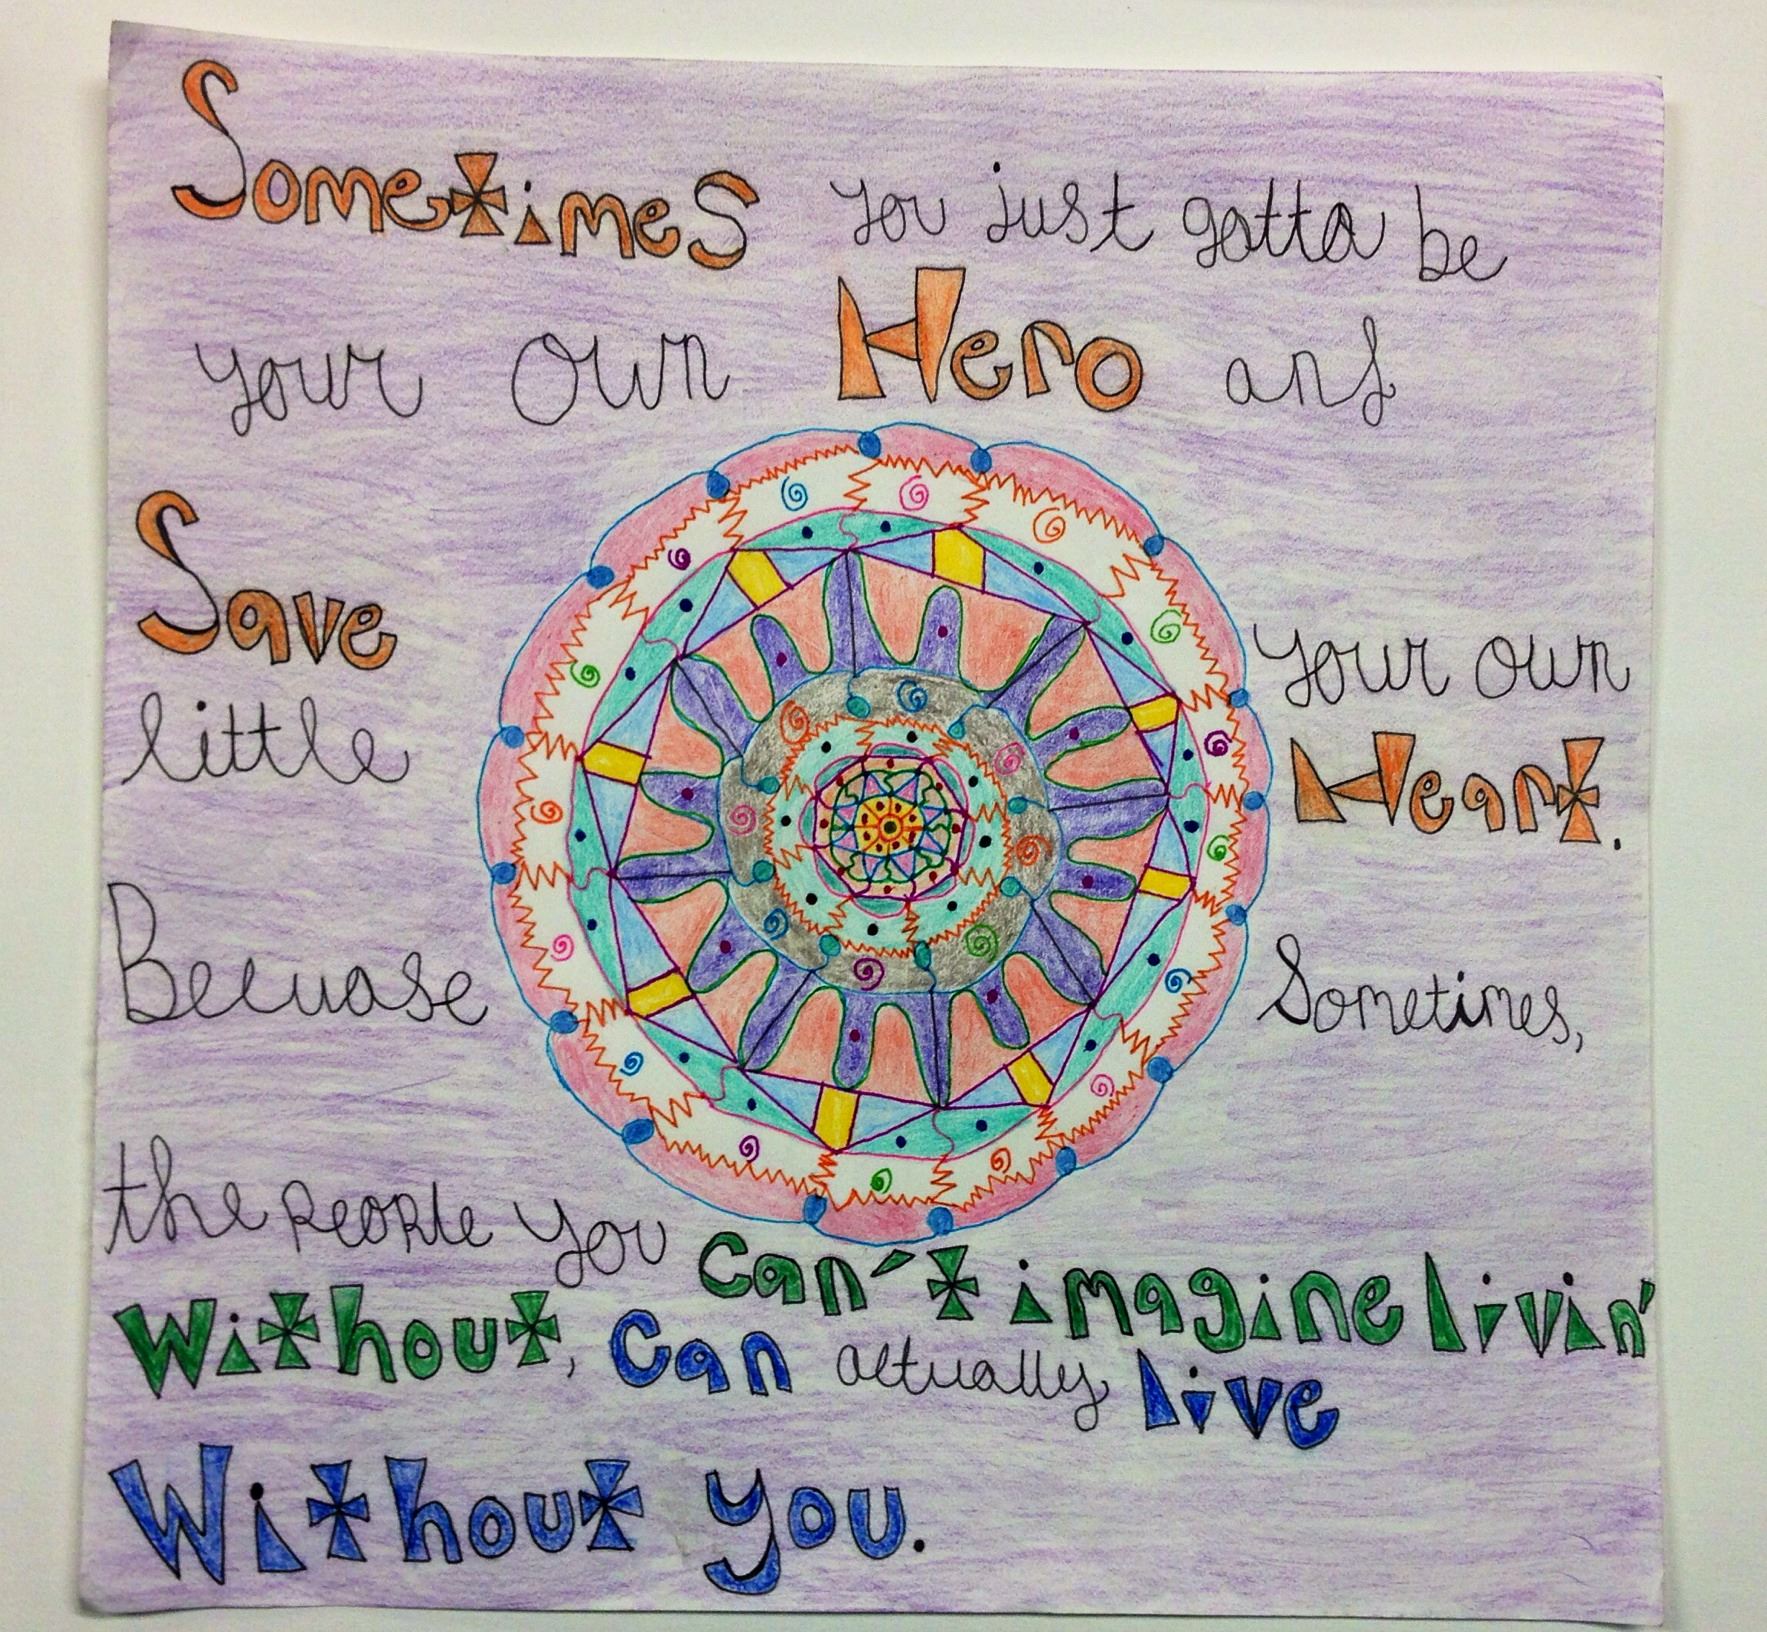 Sometimes you just gotta be
your own Hero and
Save your own
little Heart.
Becuase Sometimes,
the people you can't imagine livin'
without, can actually live
Without you.